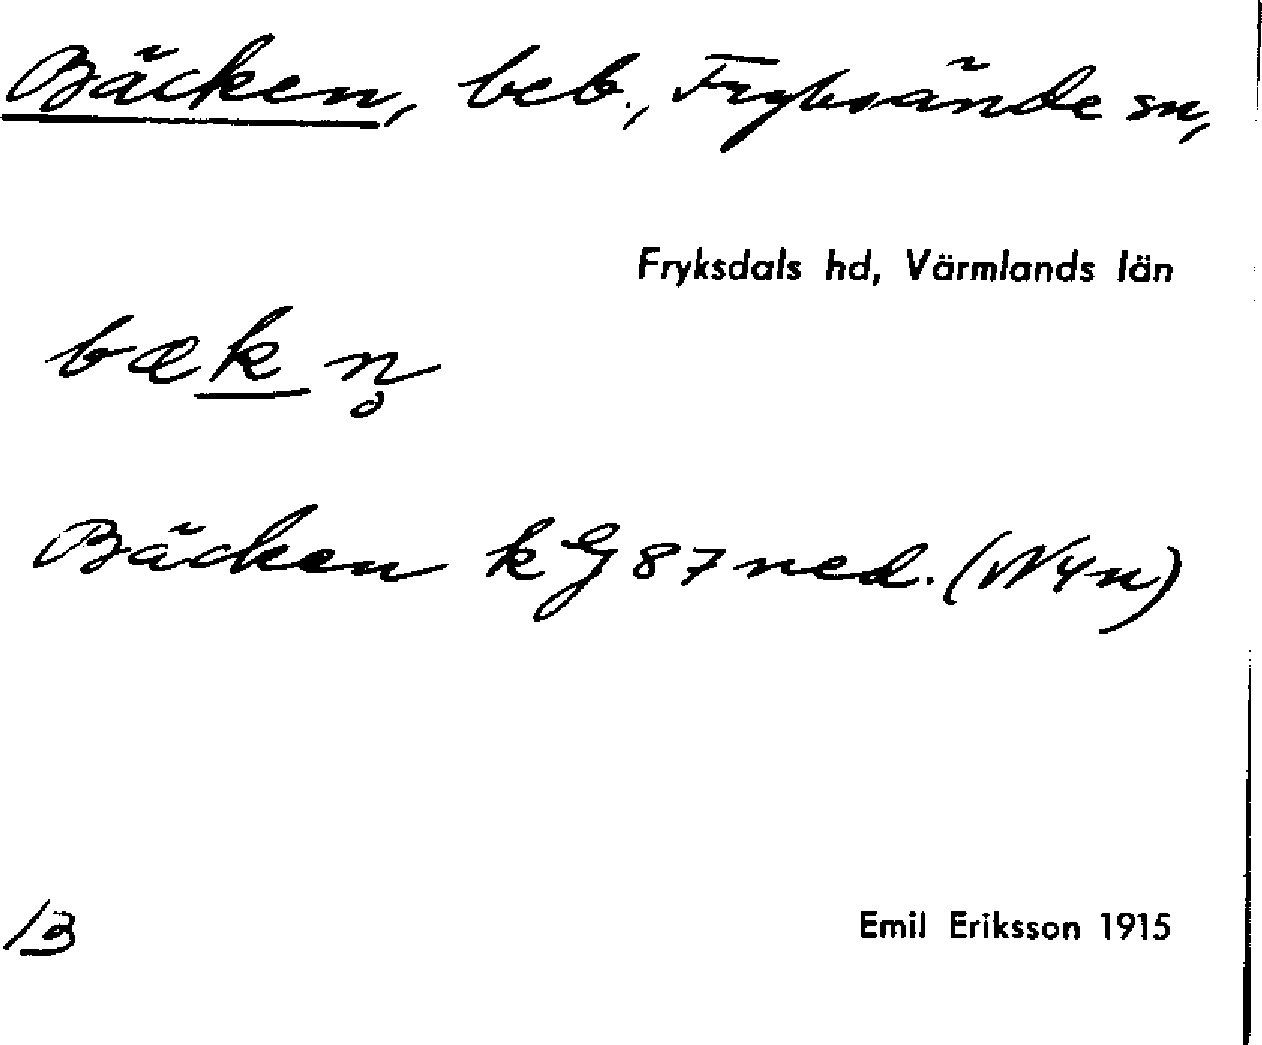 Bäcken, beb., Fryksände sn,
Fryksdals hd, Värmlands län
bækn̥
Bäcken kG 87 ned. (N4n)
13
Emil Eriksson 1915